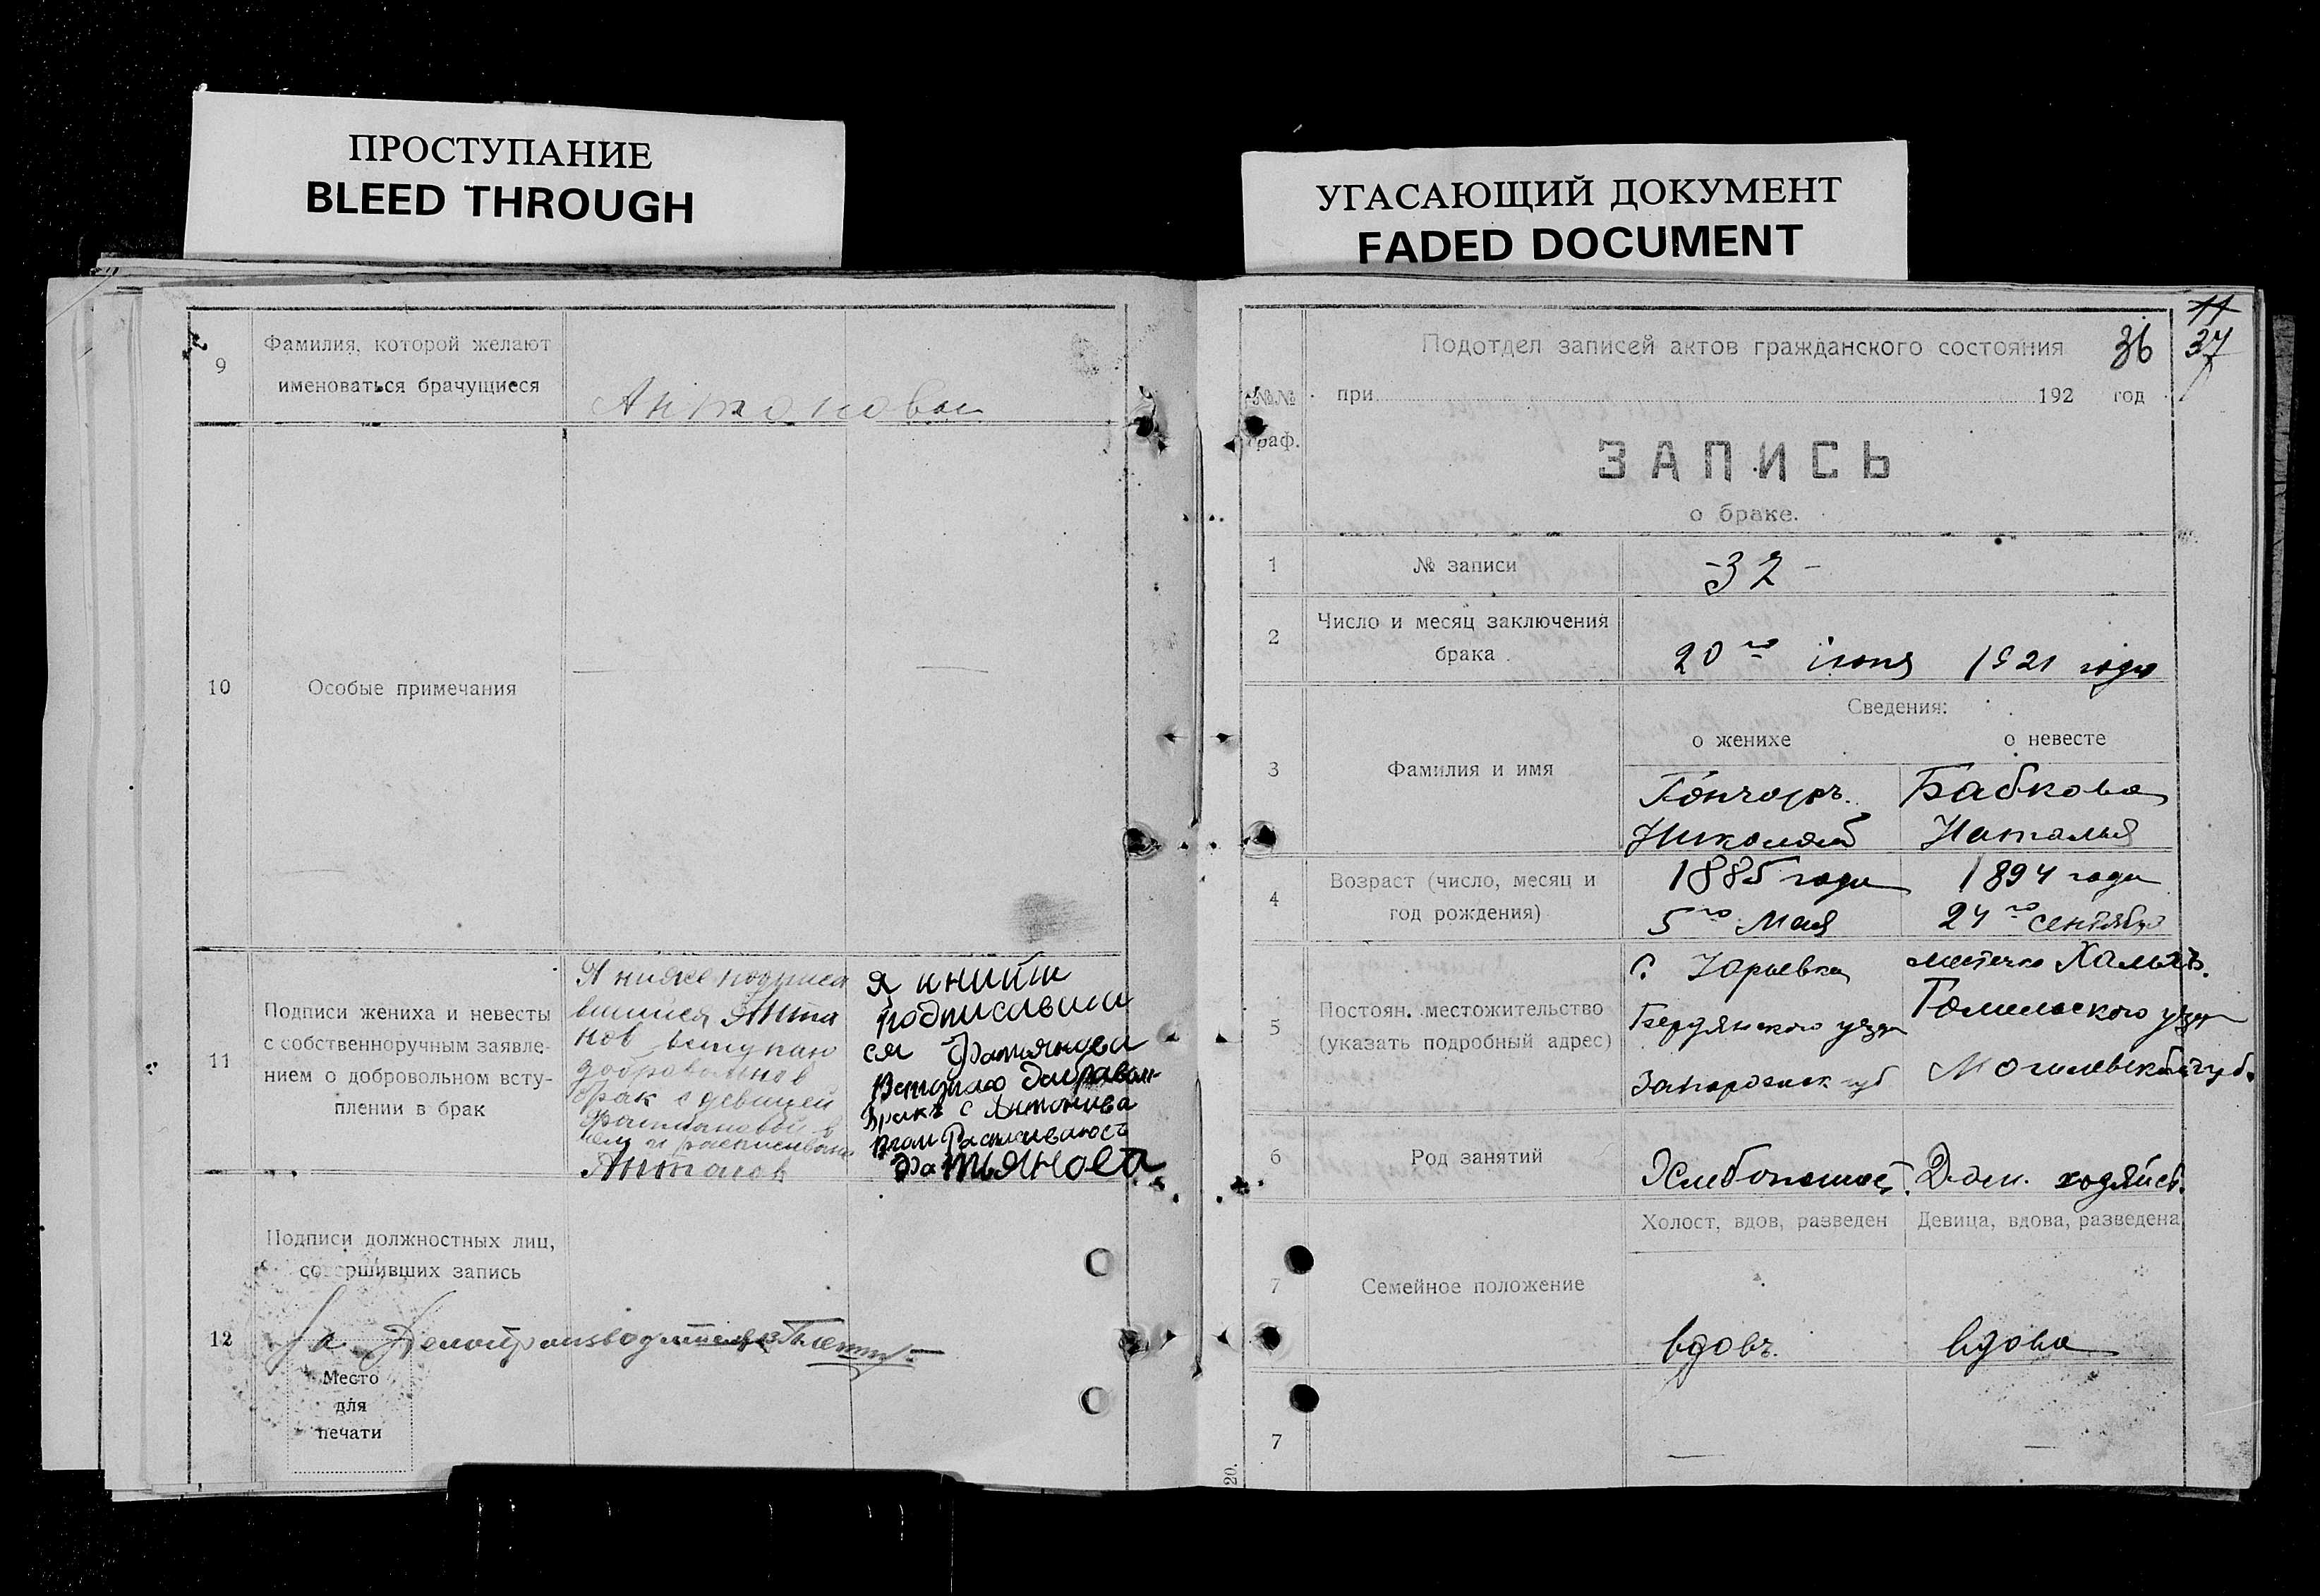 ПРОСТУПАНИЕ
BLEED THROUGH
9
Фамилия, которой желают
именоваться брачущиеся
Антоновы
10
Особые примечания
11
Подписи жениха и невесты
с собственноручным заявле-
нием о добровольном всту-
плении в брак
Я ниже подписа
вшийся Анта
нов вступаю
добровольно в
брак с девицей
Фатьяновой в
чем и расписываю
Антонов
я ниший
подписавши
ся Фатьянова
вступаю добравол
бракъ с Антонива
Фатьянова
12
Подписи должностных лиц,
совершивших запись
За Делопроизводителя
Место
для
печати
УГАСАЮЩИЙ ДОКУМЕНТ
FADED DOCUMENT
11
37
Подотдел записей актов гражданского состояния
36
№№
граф.
при 192 год
ЗАПИСЬ
о браке.
1
№ записи
-32-
2
Число и месяц заключения
брака
20го июня 1921 года
3
Фамилия и имя
Сведения:
о женихе
о невесте
Гончаръ.
Николай
Бабкова
Наталья
4
Возраст (число, месяц и
год рождения)
1885 года
5го Мая
1894 года
24го сентября
5
Постоян. местожительство
(указать подробный адрес)
с. Юрьевка
Бердянского уезда
Запорожск губ
местечко Хальчъ.
Гомельского уезда
Могилевской губ.
6
Род занятий
Хлебопашес.
Дом. хозяйств.
7
Семейное положение
Холост, вдов, разведен
Девица, вдова, разведена
вдовъ.
вдова
7
20.